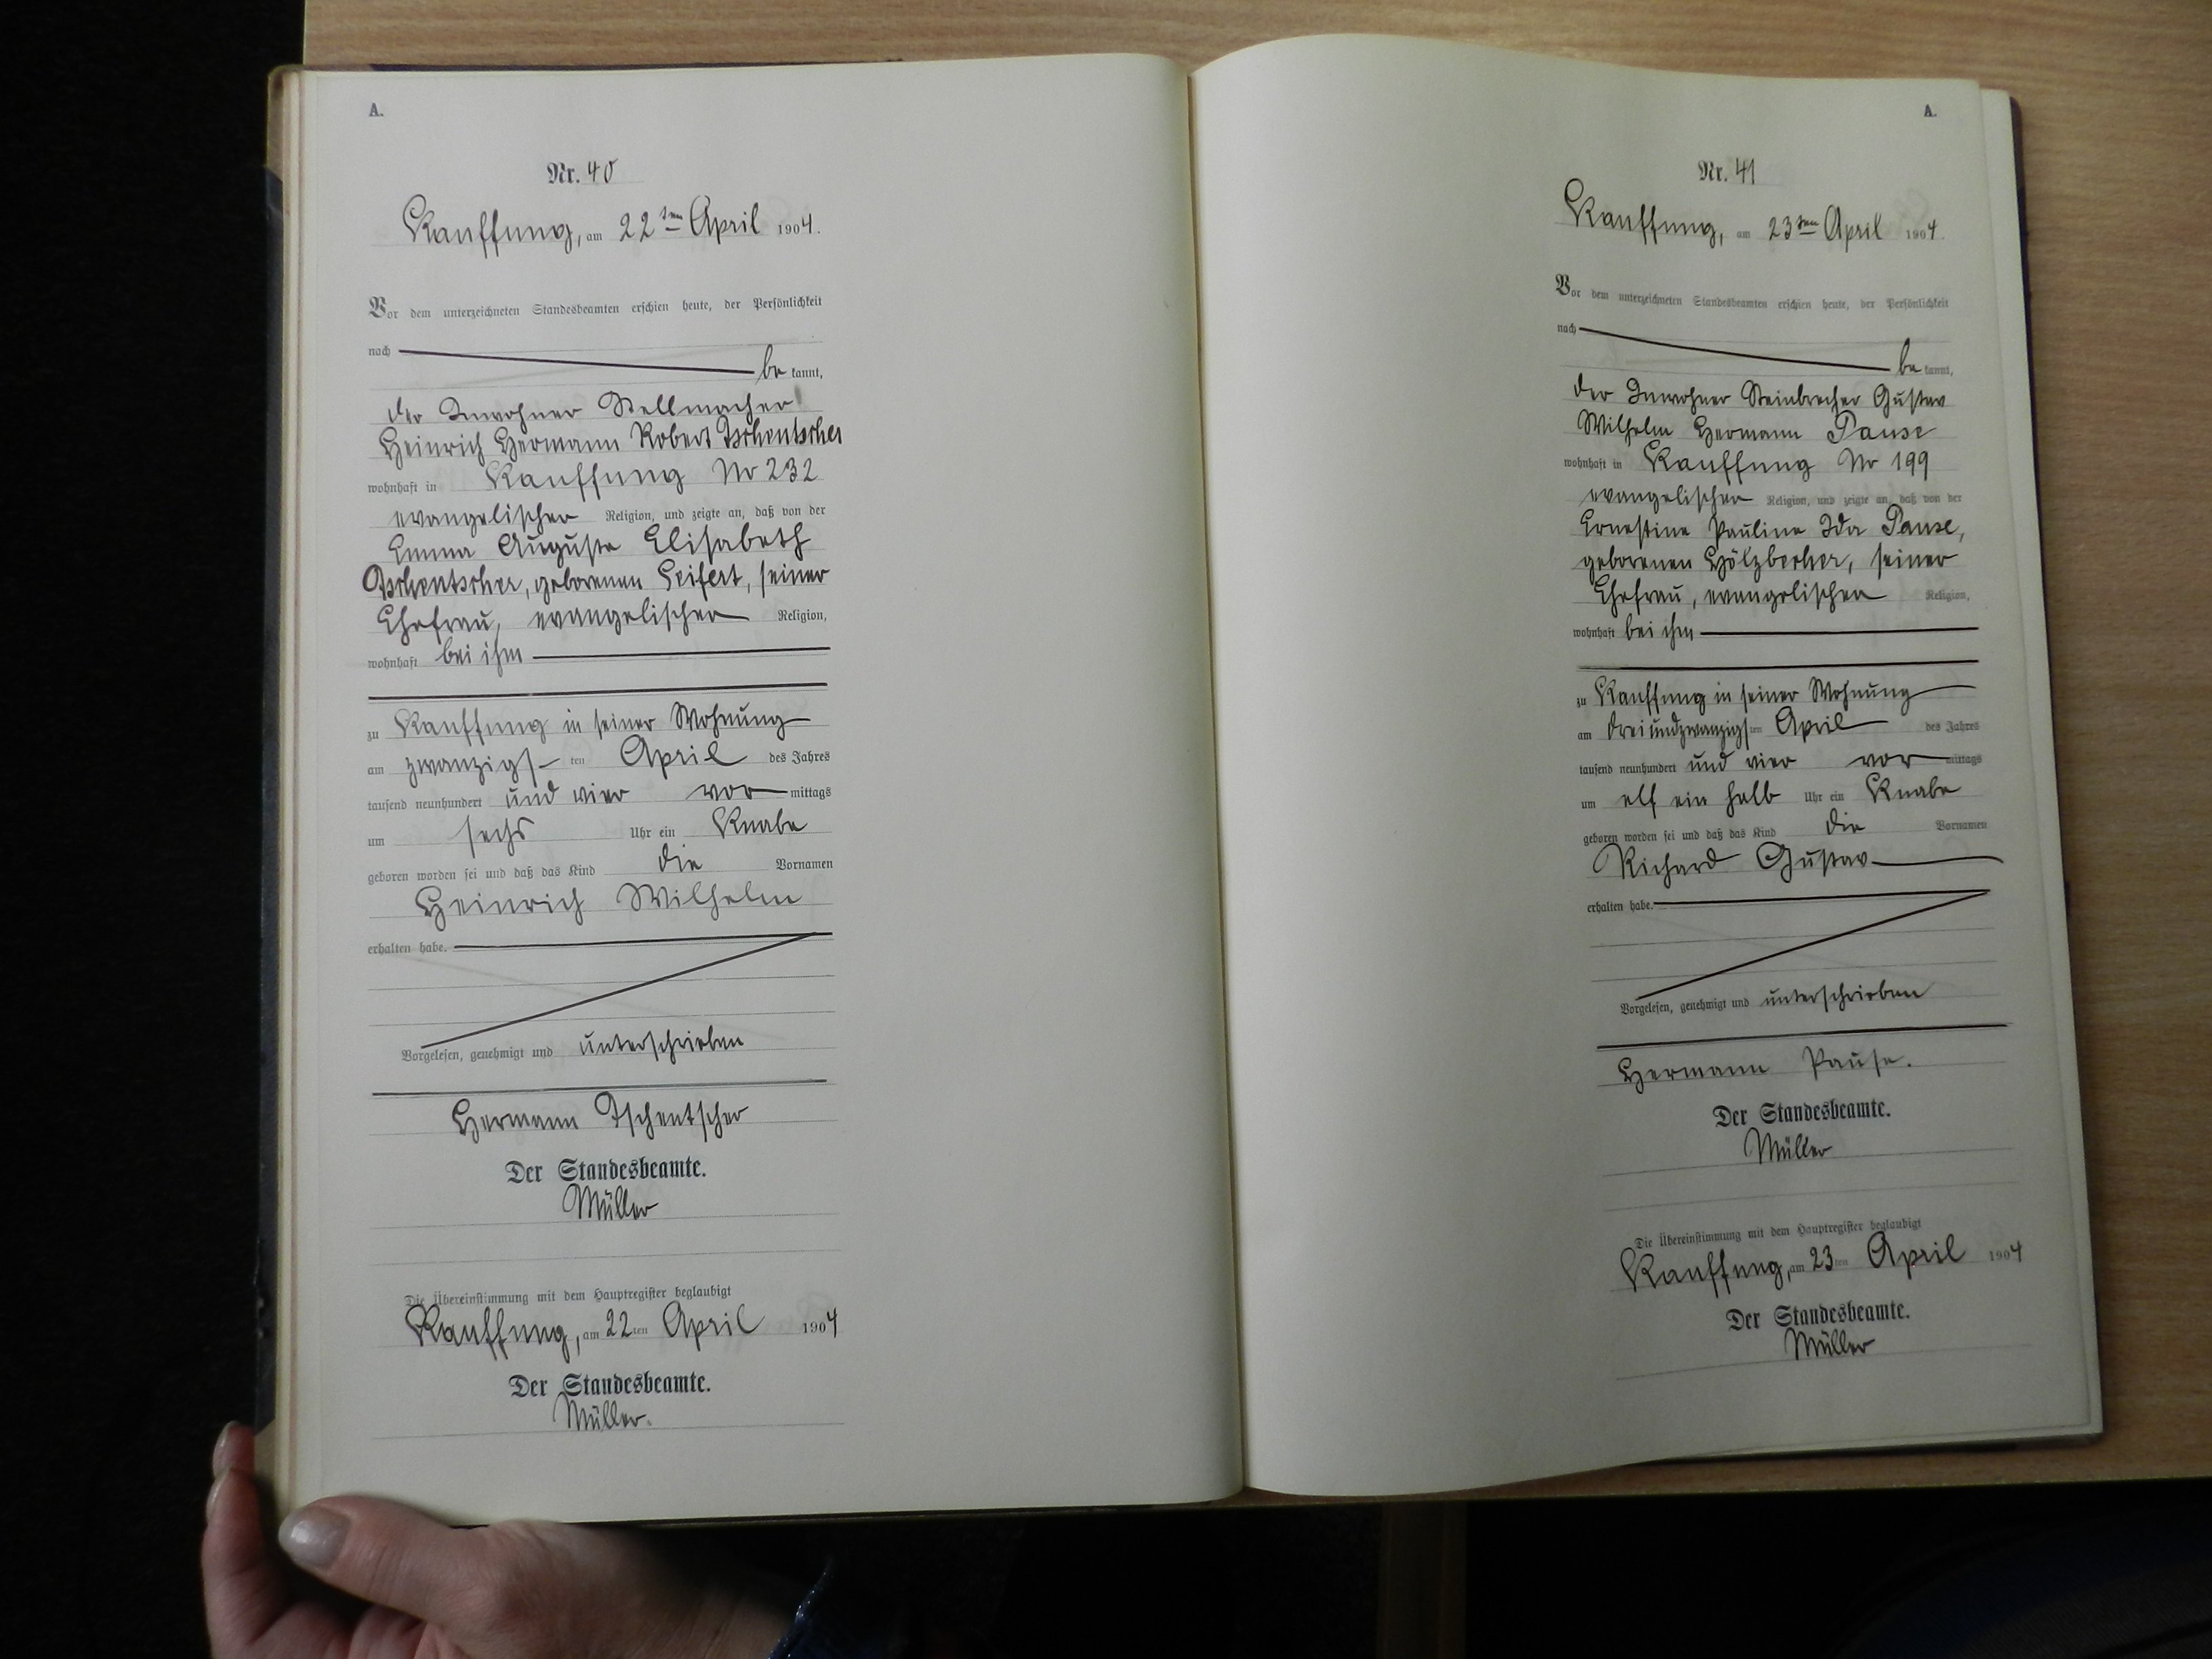 A.
Nr. 40
Kauffung, am 22sten April 1904.
Vor dem unterzeichneten Standesbeamten erschien heute, der Persönlichkeit
nach
be kannt,
der Inwohner Stellmacher
Heinrich Hermann Robert Tschentscher
wohnhaft in Kauffung No 232
evangelischer Religion, und zeigte an, daß von der
Emma Auguste Elisabeth
Tschentscher, geborenen Seifert, seiner
Ehefrau, evangelischer Religion,
wohnhaft bei ihm
zu Kauffung in seiner Wohnung
am zwanzigs ten April des Jahres
tausend neunhundert und vier vor mittags
um sechs Uhr ein Knabe
geboren worden sei und daß das Kind die Vornamen
Heinrich Wilhelm
erhalten habe.
Vorgelesen, genehmigt und unterschrieben
Hermann Tschentscher
Der Standesbeamte.
Müller
Die Übereinstimmung mit dem Hauptregister beglaubigt
Kauffung, am 22ten April 1904
Der Standesbeamte.
Müller.
A.
Nr. 41
Kauffung, am 23sten April 1904.
Vor dem unterzeichneten Standesbeamten erschien heute, der Persönlichkeit
nach
be kannt,
der Inwohner Steinbrecher Gustav
Wilhelm Hermann Pause
wohnhaft in Kauffung No 199
evangelischer Religion, und zeigte an, daß von der
Ernestine Pauline Ida Pause,
geborenen Hölzbecher, seiner
Ehefrau, evangelischer Religion,
wohnhaft bei ihm
zu Kauffung in seiner Wohnung
am dreiundzwanzigs ten April des Jahres
tausend neunhundert und vier vor mittags
um elf ein halb Uhr ein Knabe
geboren worden sei und daß das Kind die Vornamen
Richard Gustav
erhalten habe.
Vorgelesen, genehmigt und unterschrieben
Hermann Pause.
Der Standesbeamte.
Müller
Die Übereinstimmung mit dem Hauptregister beglaubigt
Kauffung, am 23ten April 1904
Der Standesbeamte.
Müller